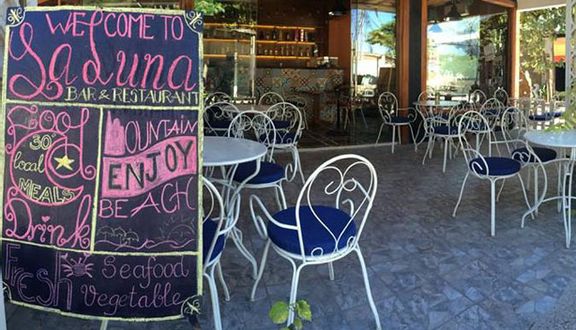 WELCOME TO
LaLuna
BAR & RESTAURANT
Food
30+
local
MEALS
&
Drink
MOUNTAIN
ENJOY
BEACH
Fresh
Seafood
Vegetable